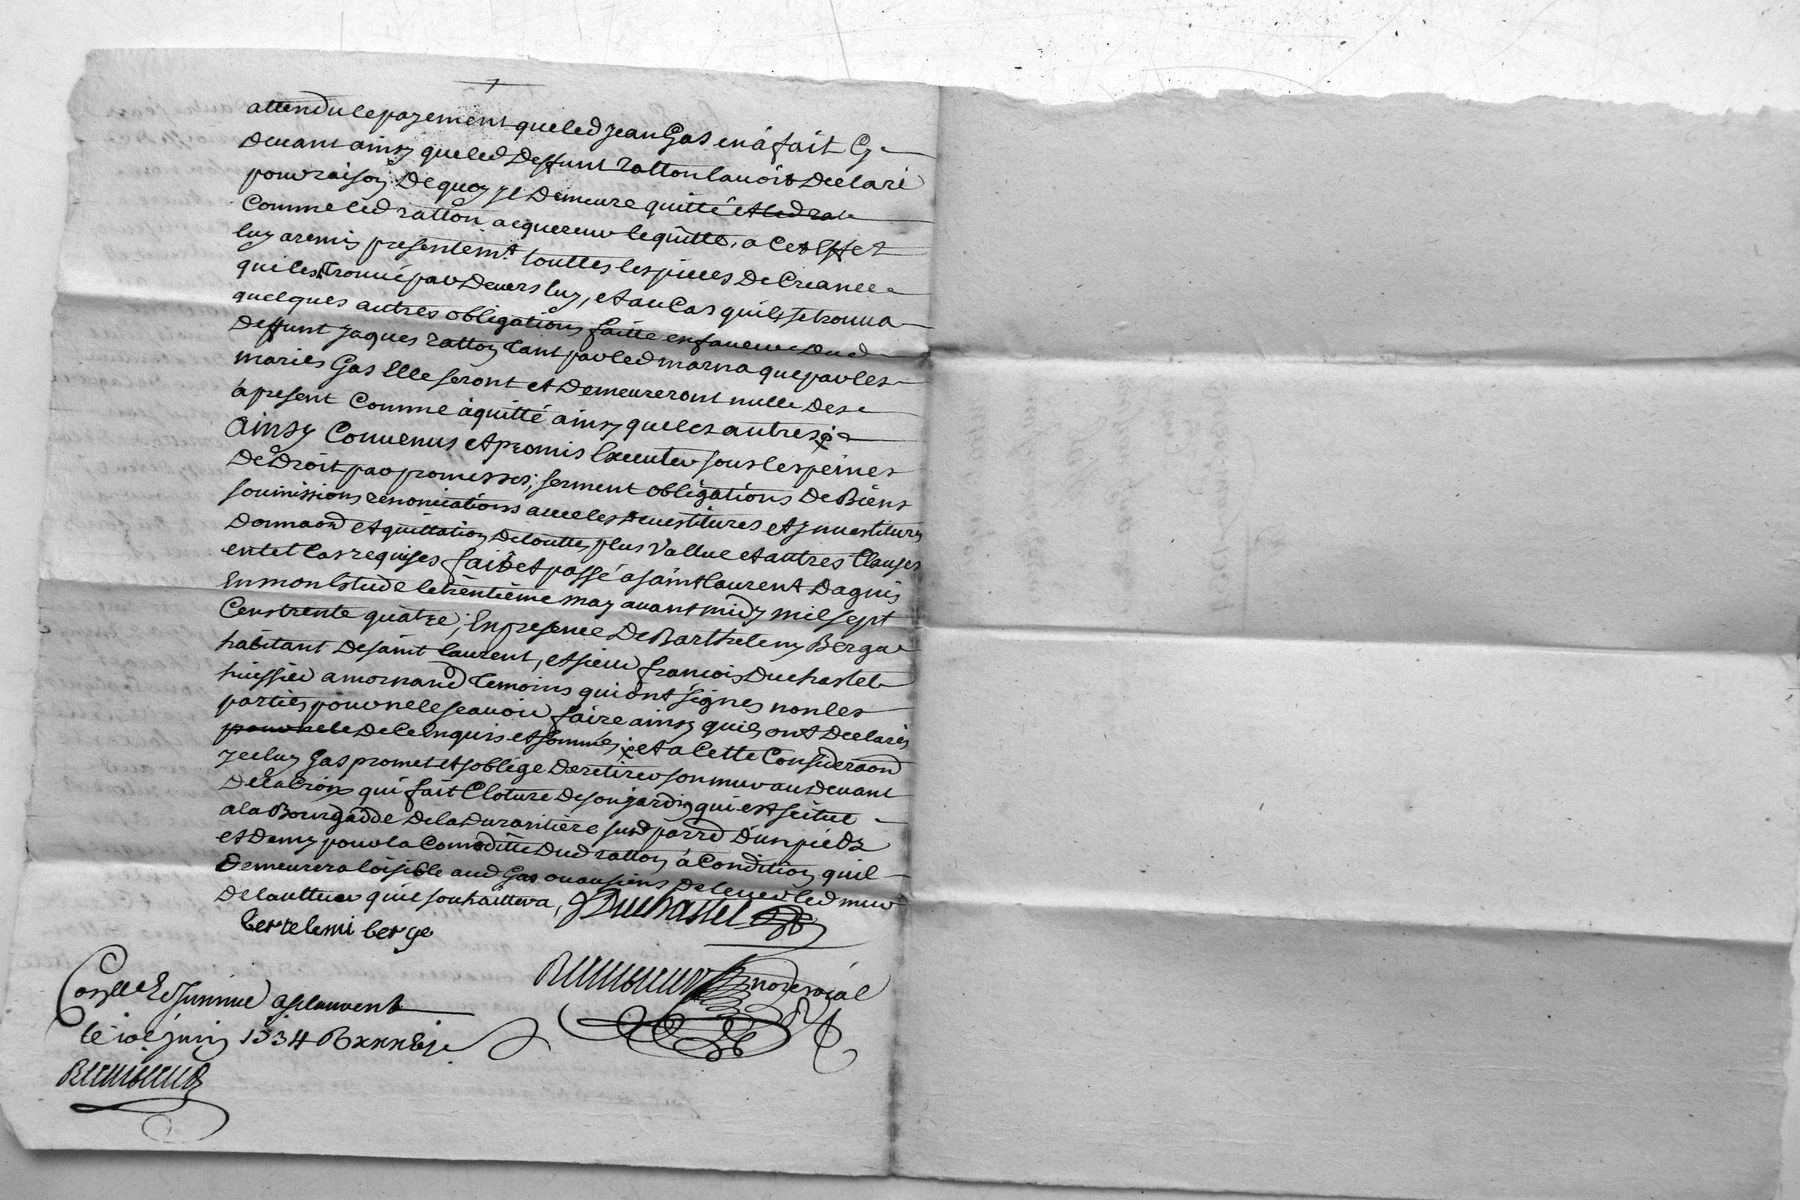 attendu le payement que led jean Gas en à fait Cy
devant ainsy que led deffunt ratton lavoit declaré
pour raison de quoy jl demeure quitte et led ra
comme led ratton acquereur le quitte, a cet effet
luy a remis presentemt touttes les pieces de Creance
qui les trouvé par devers luy, et au Cas quil se trouva
quelques autres obligations faitte en faveur dud
deffunt jaques ratton tant par led marna que par les
mariés Gas Elle seront et demeureront nulle des
àpresent Comme àquitté ainsy que les autres
ainsy Convenus et promis Executer sous les peines
de droit par promesses, serment obligations de Biens
soumissions renonciations avec les devestitures et jnvestitures
donnaōn et quittation de toutte plus vallue et autres Clauses
en tel Cas requises fait et passé a saint laurent dagnis
En mon Estude le trentième may avant midy mil sept
Cens trente quatre, En presence de Barthelemy Berga
habitant de saint laurent, et sieur françois Duchastel
huissier a mornand temoins qui ont signés non les
parties pour ne le scavoir faire ainsy quils ont declarés
pour ne le de ce enquis et sommés et a Cette Consideraōn
jceluy Gas promet et soblige de retirer son mur au devant
de la Croix qui fait Cloture de son jardin qui est scitué
a la Bourgadde de la durantière sud parrd d'un pied
et demy pour la Comoditté dud ratton à Condition quil
demeurera loisible aud Gas ou au siens de lever led mur
de lautteur quil souhaittera, Duchastel
bertelemi berge
nore royal
Conllé Et st laurent
le 10e juin 1734 R